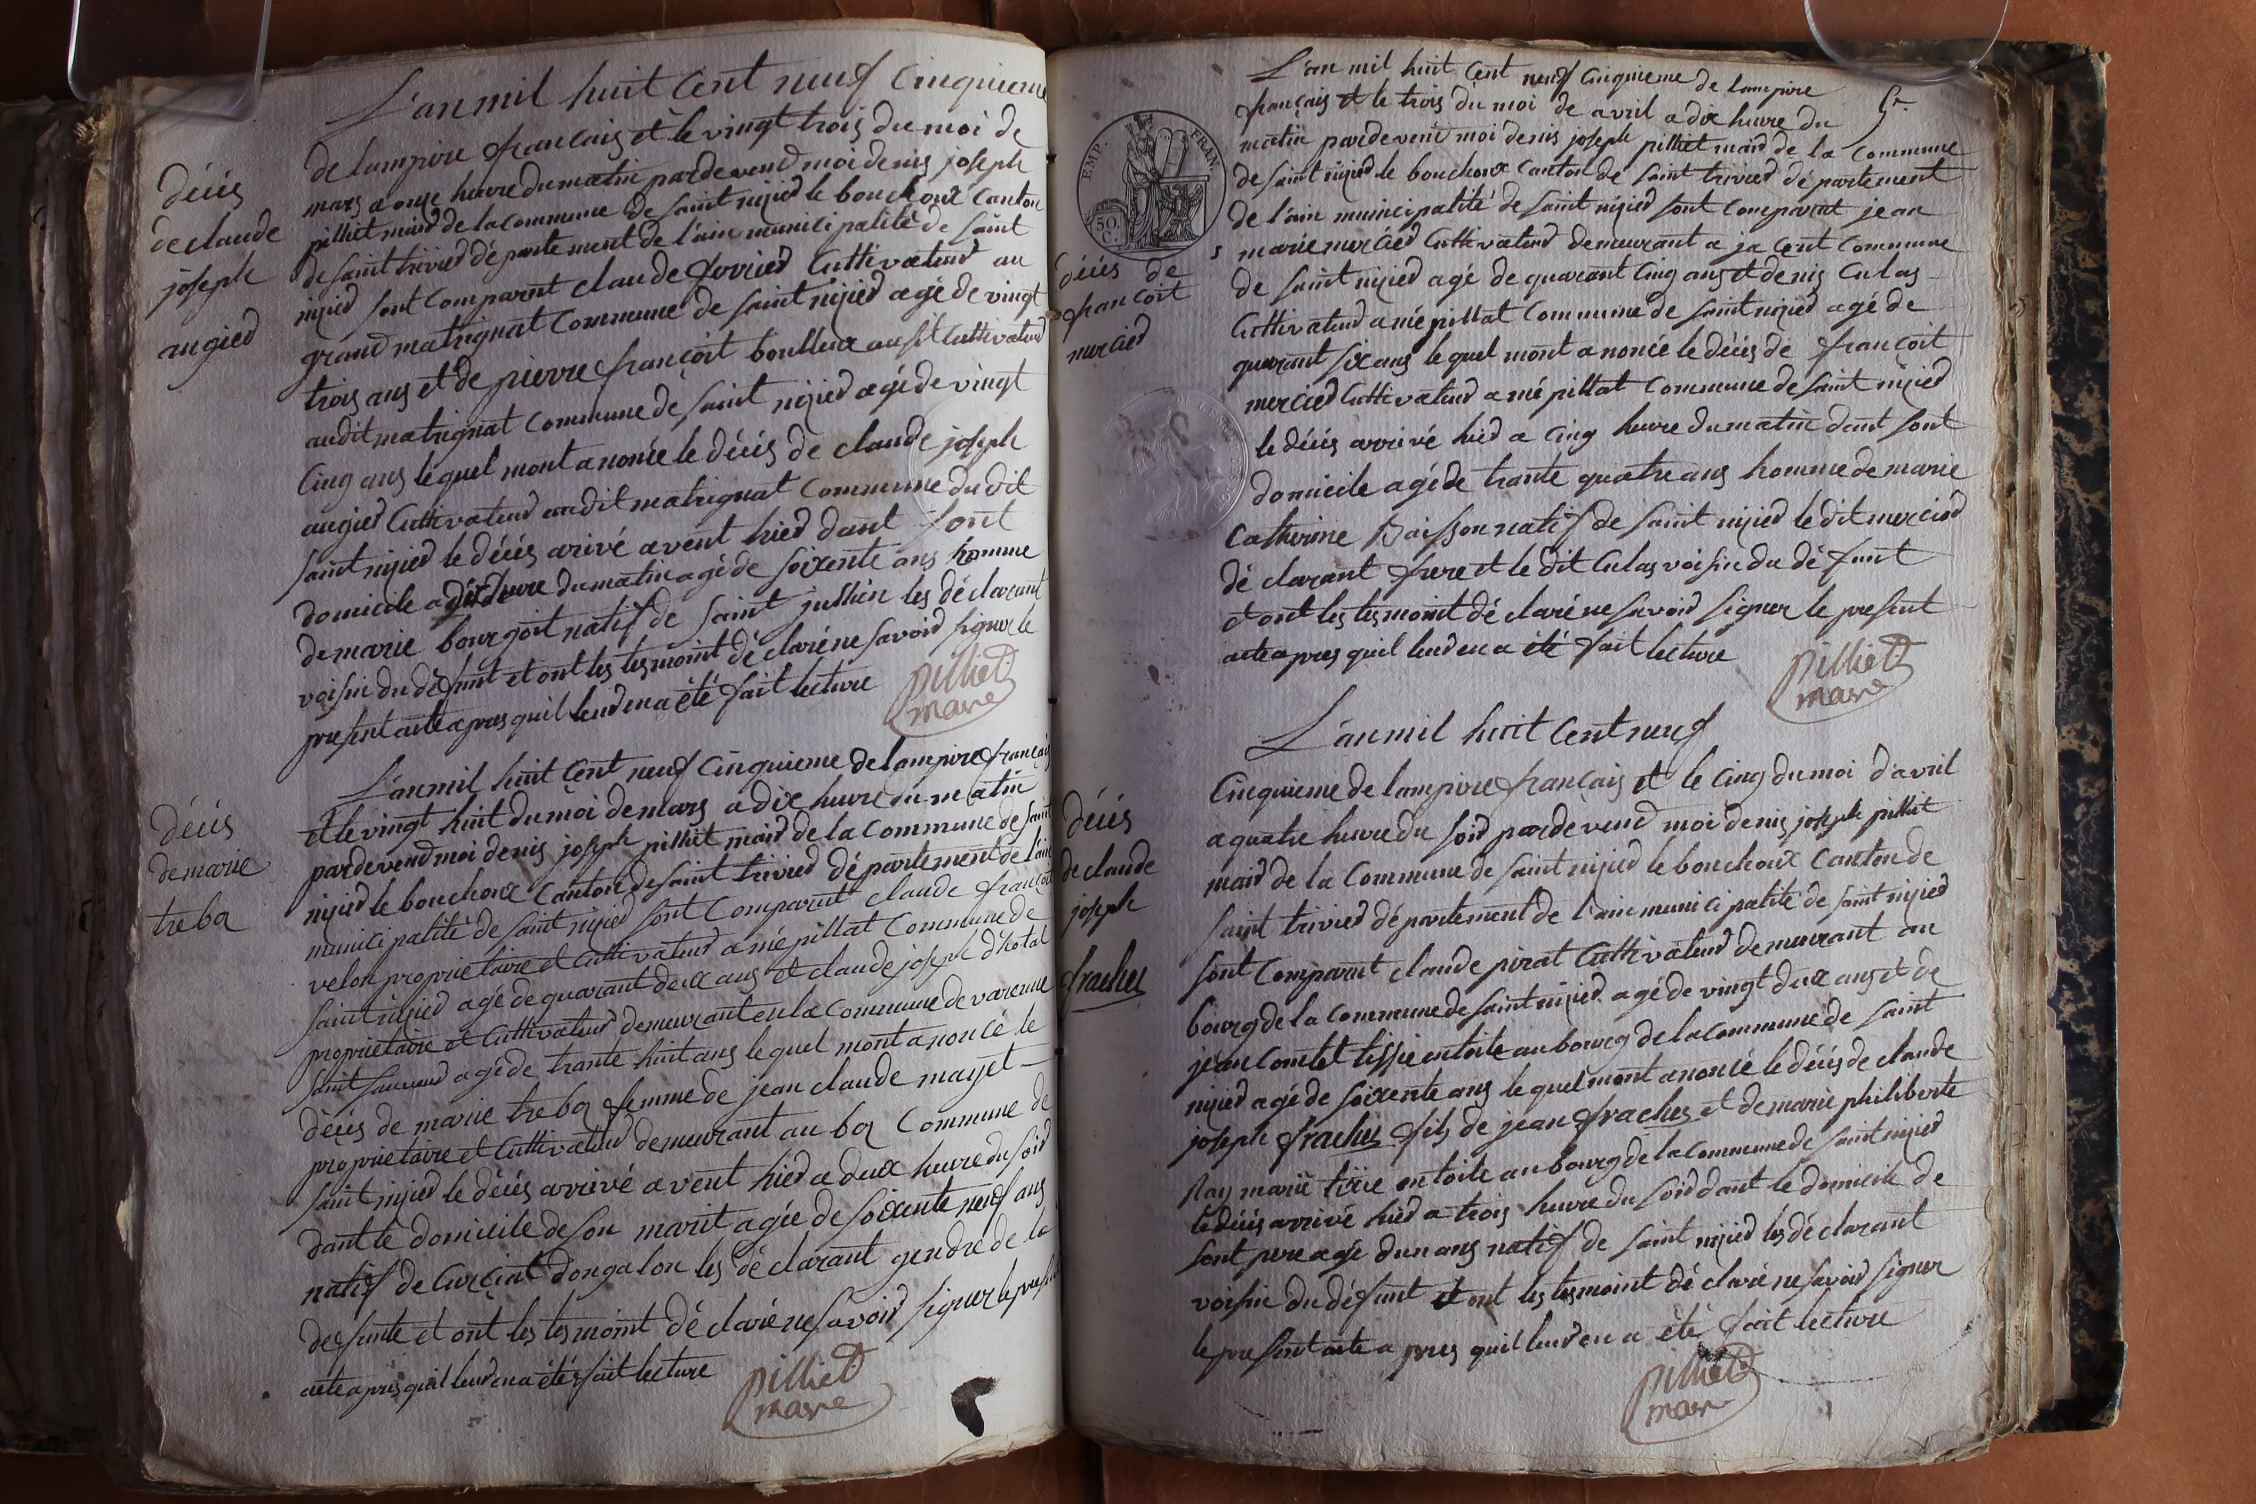 L'an mil huit cent neuf Cinquieme
de lampire français et le vingt trois du moi de
mars a onze heure du matin pardevend moi denis joseph
pilliet maird de la commune de saint nizied le bouchoux Canton
de saint trivied département de l'ain municipalité de saint
nizied sont comparent claude ferried Cultivateud au
grand matrignat commune de saint nizied agé de vingt
trois ans et de pierre françoit boulleux aussit Cultivateud
audit matrignat commune de saint nizied agé de vingt
Cinq ans lequel mont anoncée le décés de claude joseph
angied Cultivateud audit matrignat commune du dit
saint nizied le décés arivé avent hied dant sont
domicile a dix heure du matin agé de soixente ans homme
de marie bourgoit natif de saint jullien les déclarant
voisin du défunt et ont les tesmoint déclaré ne savoid signer le
present acte apres quil leud en a été fait lecture
pilliet
mare
décés
de claude
joseph
angied
L'an mil huit cent neuf Cinquieme de lampire français
et le vingt huit du moi de mars a dix heure du matin
pardevend moi denis joseph pilliet maird de la commune de saint
nizied le bouchoux Canton de saint trivied département de l'ain
municipalité de saint nizied sont comparent claude françoit
velon proprietaire et Cultivateud a mépillat commune de
saint nizied agé de quarant deux ans et claude joseph d'hotal
proprietaire et Cultivateud demeurant en la commune de varenne
saint sauveud agé de trante huit ans lequel mont anoncé le
décés de marie treboz femme de jean claude mayet
proprietaire et Cultivateud demeurant au boz commune de
saint nizied le décés arrivé avent hied a deux heure du soid
dant le domicile de son marit agée de soixente neuf ans
natif de Curciat dongalon les déclarant gendre de la
defunte et ont les tesmoint déclaré ne savoid signer le present
acte apres quil leud en a étée fait lecture
pilliet
mare
décés
de marie
treboz
L'an mil huit cent neuf Cinquieme de lampire
français et le trois du moi de avril a dix heure du
matin pardevend moi denis joseph pilliet maird de la commune
de saint nizied le bouchoux Canton de saint trivied département
de l'ain municipalité de saint nizied sont comparent jean
marie mercied Cultivateud demeurant a jacent commune
de saint nizied agé de quarant Cinq ans et denis Culas
Cultivateud a mépillat commune de saint nizied agé de
quarant six ans lequel mont anoncée le décés de françoit
mercied Cultivateud a mépillat commune de saint nizied
le décés arrivé hied a Cinq heure du matin dant sont
domicile agé de trante quatre ans homme de marie
Catherine Boisson natif de saint nizied le dit mercied
déclarant frere et le dit Culas voisin du défunt
et ont les tesmoint déclaré ne savoid signer le present
acte apres quil leud en a été fait lecture
pilliet
mare
EMP. FRAN.
50 C.
décés de
françoit
mercied
L'an mil huit Cent neuf
Cinquieme de lampire français et le Cinq du moi d'avril
a quatre heure du soid pardevend moi denis joseph pilliet
maird de la commune de saint nizied le bouchoux Canton de
saint trivied département de l'ain municipalité de saint nizied
sont comparent claude pirat Cultivateud demeurant au
bourg de la commune de saint nizied agé de vingt deux ans et de
jean comtet tissie en toile au bourg de la commune de saint
nizied agé de soixente ans lequel mont anoncé le décés de claude
joseph frachet fils de jean frachet et de marie philiberte
Ray en toile au bourg de la commune de saint nizied
le décés arrivé hied a trois heure du soid dant le domicile de
sont pere agé dun ans natif de saint nizied les déclarant
voisin du défunt et ont les tesmoint déclaré ne savoid signer
le present acte apres quil leud en a été fait lecture
pilliet
mare
décés
de claude
joseph
frachet